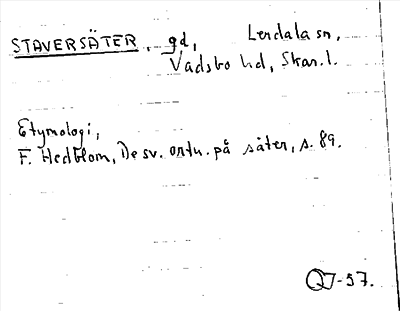 STAVERSÄTER, gd, Lerdala sn,
Vadsbo hd, Skar. l.
Etymologi,
F. Hedblom, De sv. ortn. på säter, s. 89.
57.